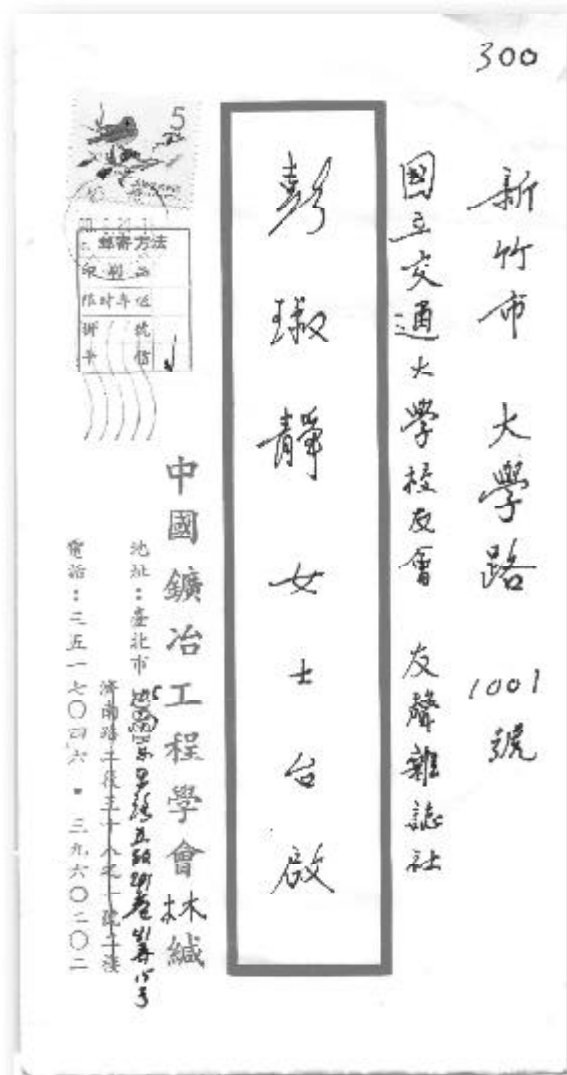 300
新竹市 大學路 1001 號
國立交通大學校友會 友聲雜誌社
彭琡靜 女士 台啟
5
郵寄方法
印刷品
限時專送
掛號
平信
中國鑛冶工程學會林緘
地址：臺北市
濟南路二段三十八之一號二樓
電話：三五一七〇四六・三九六〇二〇二